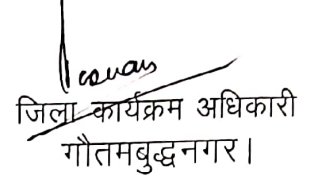 जिला कार्यक्रम अधिकारी
गौतमबुद्धनगर।